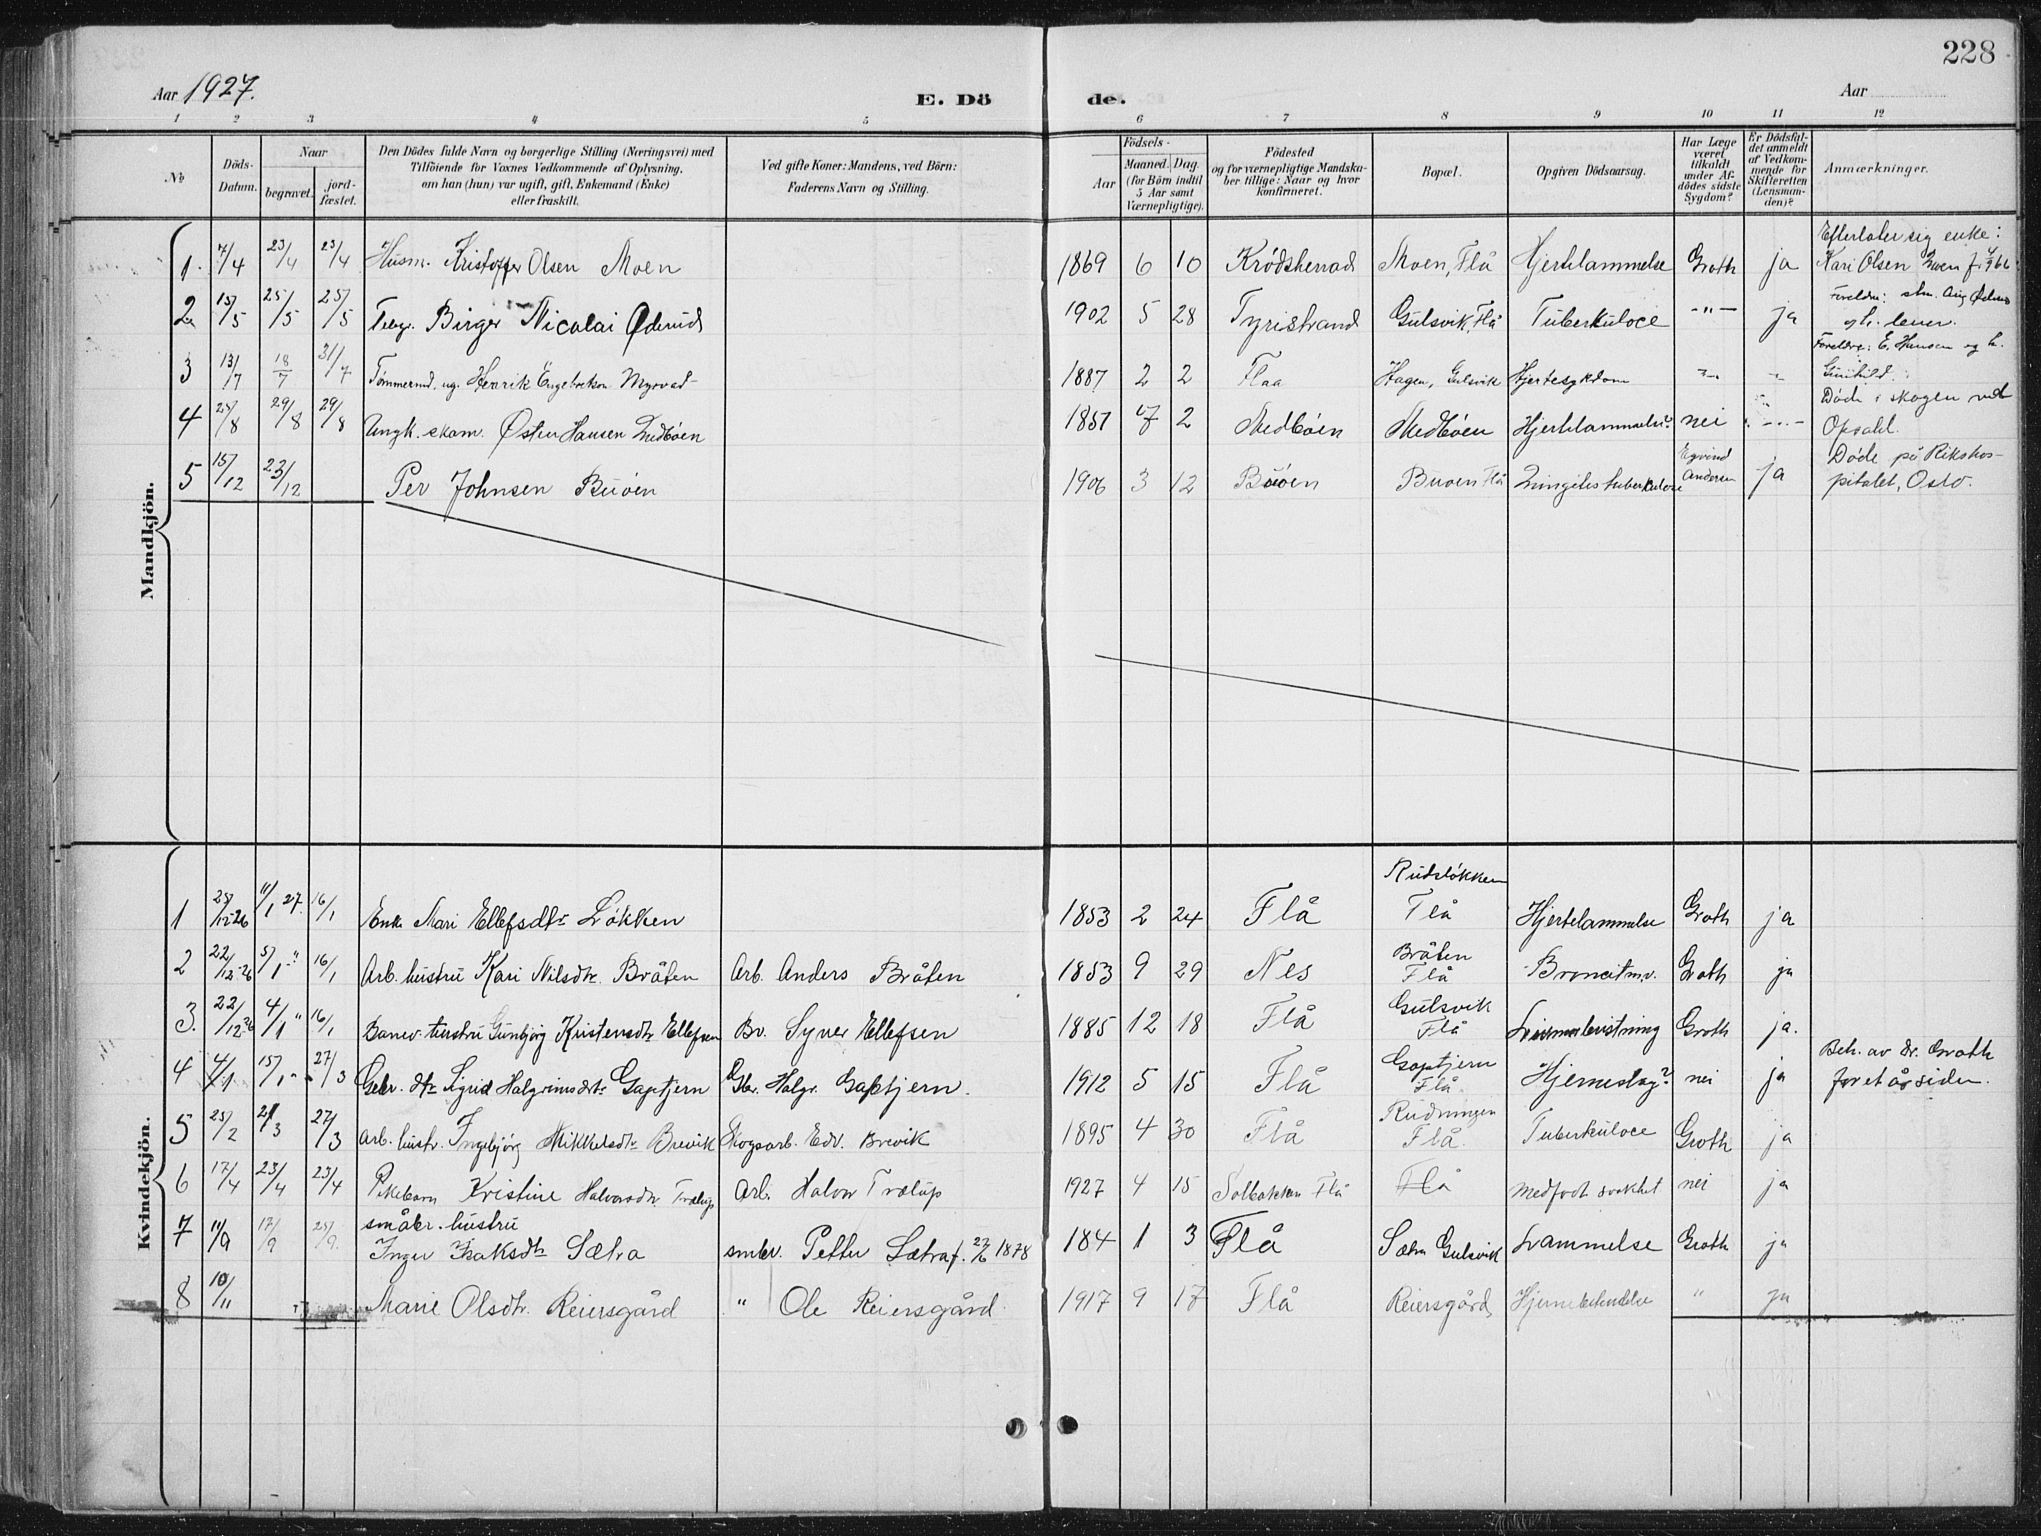 228
Aar 1927.
E. Dö
de.
Aar
1 2 3 4 5 6 7 8 9 10 11 12
№
Döds-Datum.
Naar
begravet.
jord-fæstet.
Den Dödes fulde Navn og borgerlige Stilling (Næringsvei) med
Tilföiende for Voxnes Vedkommende af Oplysning,
om han (hun) var ugift, gift, Enkemand (Enke)
eller fraskilt.
Ved gifte Koner: Mandens, ved Börn:
Faderens Navn og Stilling.
Födsels-
Aar
Maaned. Dag.
(for Börn indtil
5 Aar samt
Værnepligtige).
Födested
og for værnepligtige Mandska-
ber tillige: Naar og hvor
konfirmeret.
Bopæl.
Opgiven Dödsaarsag.
Har Læge
været
tilkaldt
under Af-
dödes sidste
Sygdom?
Er Dödsfal-
det anmeldt
af Vedkom-
mende for
Skifteretten
(Lensman-
den)?
Anmærkninger.
Mandkjön.
1. 7/4 23/4 23/4 Husm. Kristoffer Olsen Moen 1869 6 10 Krødsherad Moen, Flå Hjertelammelse Groth ja Efterlater sig enke: Kari Olsen Moen
2 15/5 25/5 25/5 Telegr. Birger Nicolai Øderud 1902 5 28 Tyristrand Gulsvik, Flå Tuberkuloce -"- ja Foreldre:
3 13/7 18/7 31/7 Tømmermd. ug. Henrik Engebretsen Myrvad 1887 2 2 Flaa Hagen, Gulsvik Hjertesykdom -"- -"- Foreldre: E. Hansen og h. Gunhild.
4 25/8 29/8 29/8 Ungk. skom. Østen Hansen Medbøen 1857 7 2 Medbøen Medbøen Hjertelammelse? nei -"- Døde i skogen ved Opsahl.
5 15/12 23/12 Per Johnsen Buøen 1906 3 12 Buøen Buoen Flå Lungetuberkulose Eyvind Andersen ja Døde på Rikshospitalet, Oslo.
Kvindekjön.
1 25/12-26 11/1 27. 16/1 Enke Mari Ellefsdtr Løkken 1853 2 24 Flå Rudsløkken Flå Hjertelammelse Groth ja
2 22/12-26 5/1 " 16/1 Arb. hustru Kari Nilsdtr. Bråten Arb. Anders Bråten 1853 9 29 Nes Bråten Flå Broncit m.v. Groth ja
3. 22/12 26 4/1 " 16/1 Banev. hustru Gunbjørg Kristensdtr Ellefsen Bv. Syver Ellefsen 1885 12 18 Flå Gulsvik Flå Groth ja.
4 4/1 15/1 - 27/3 Gbr. dtr Sigrid Halgrimsdtr Gaptjern Gbr. Halgr. Gaptjern. 1912 5 15 Flå Gaptjern Flå Hjerneslag? nei ja Beh. av Dr. Groth for et år siden.
5 25/2 2/3 27/3 Arb. hustr. Ingebjørg Mikkelsdtr Brevik Skogsarb. Edv. Brevik 1895 4 30 Flå Rudningen Flå. Tuberkuloce Groth ja
6 17/4 23/4 23/4 Pikebarn Kristine Halvorsdtr Arb. Halvor 1927 4 15 Solbakken Flå Flå medfødt svakhet nei ja
7 11/9 17/9 25/9. småbr. hustru Inger Isaksdtr Sætra smbr. Petter Sætra f. 1878 184 1 3 Flå Sætra Gulsvik Lammelse Groth ja
8 10/11 Marie Olsdtr. Reiersgård " Ole Reiersgård. 1917 9 17 Flå Reiersgård, Hjernebetendelse " ja